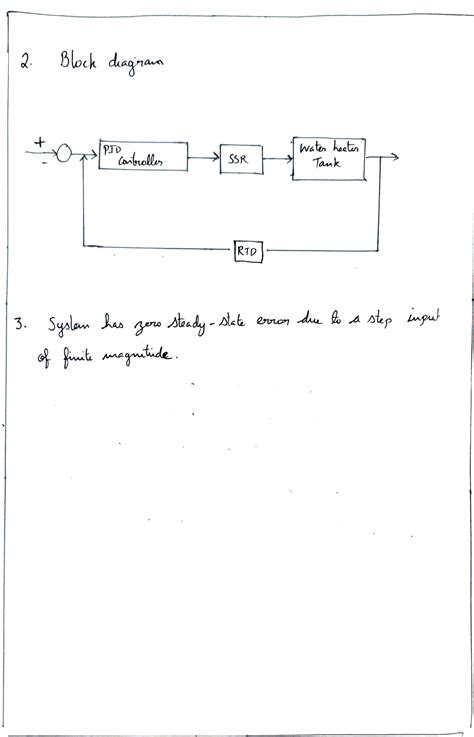 2. Block diagram
+
-
PID
Controller
SSR
Water heater
Tank
RTD
3. System has zero steady-state error due to a step input
of finite magnitude.